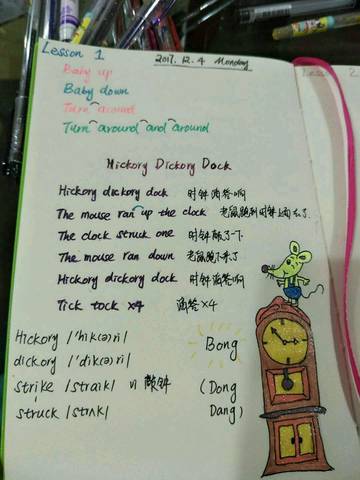 Lesson 1
2017. 12. 4 Monday
Baby up
Baby down
Turn around
Turn around and around
Hickory Dickory Dock
Hickory dickory dock 时钟滴答响
The mouse ran up the clock 老鼠跑到时钟上面去了
The clock struck one 时钟敲了一下
The mouse ran down 老鼠跑下来了
Hickory dickory dock 时钟滴答响
Tick tock ×4 滴答 ×4
Hickory /'hik(ə)ri/
dickory /'dik(ə)ri/
Bong
strike /straik/ vi 敲钟
(Dong
struck /strʌk/
Dang)